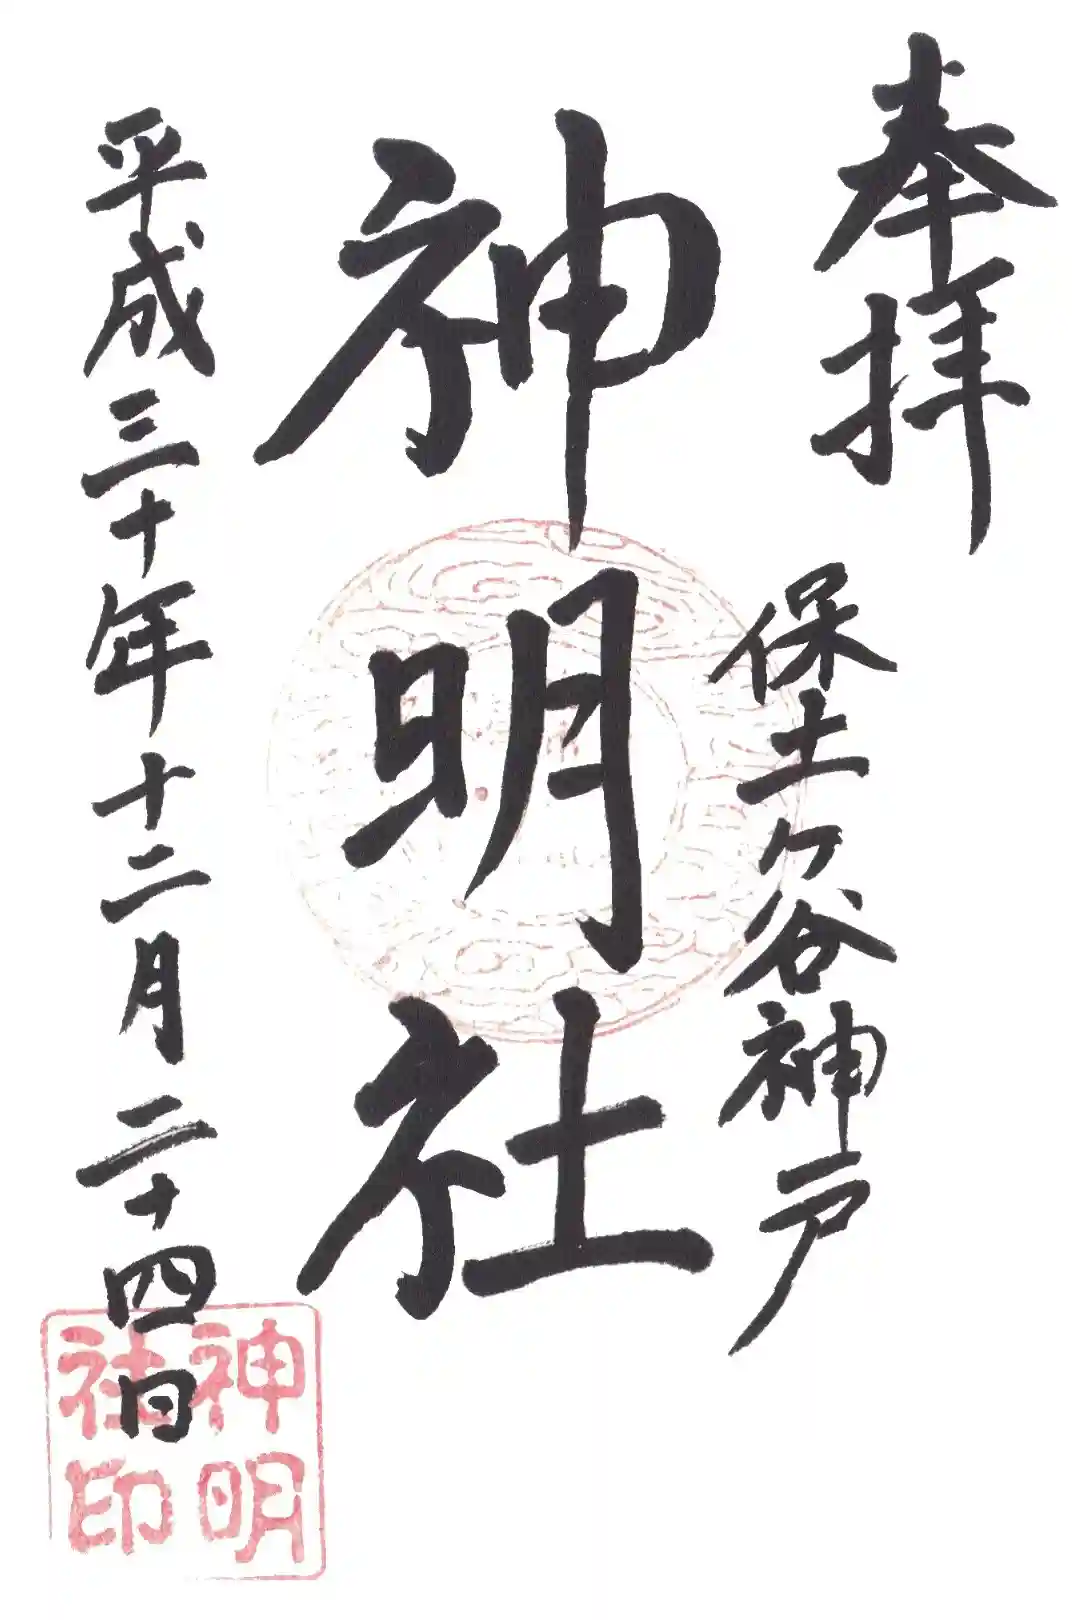 奉拝
保土ヶ谷神戸
神明社
平成三十年十二月二十四日
神明
社印